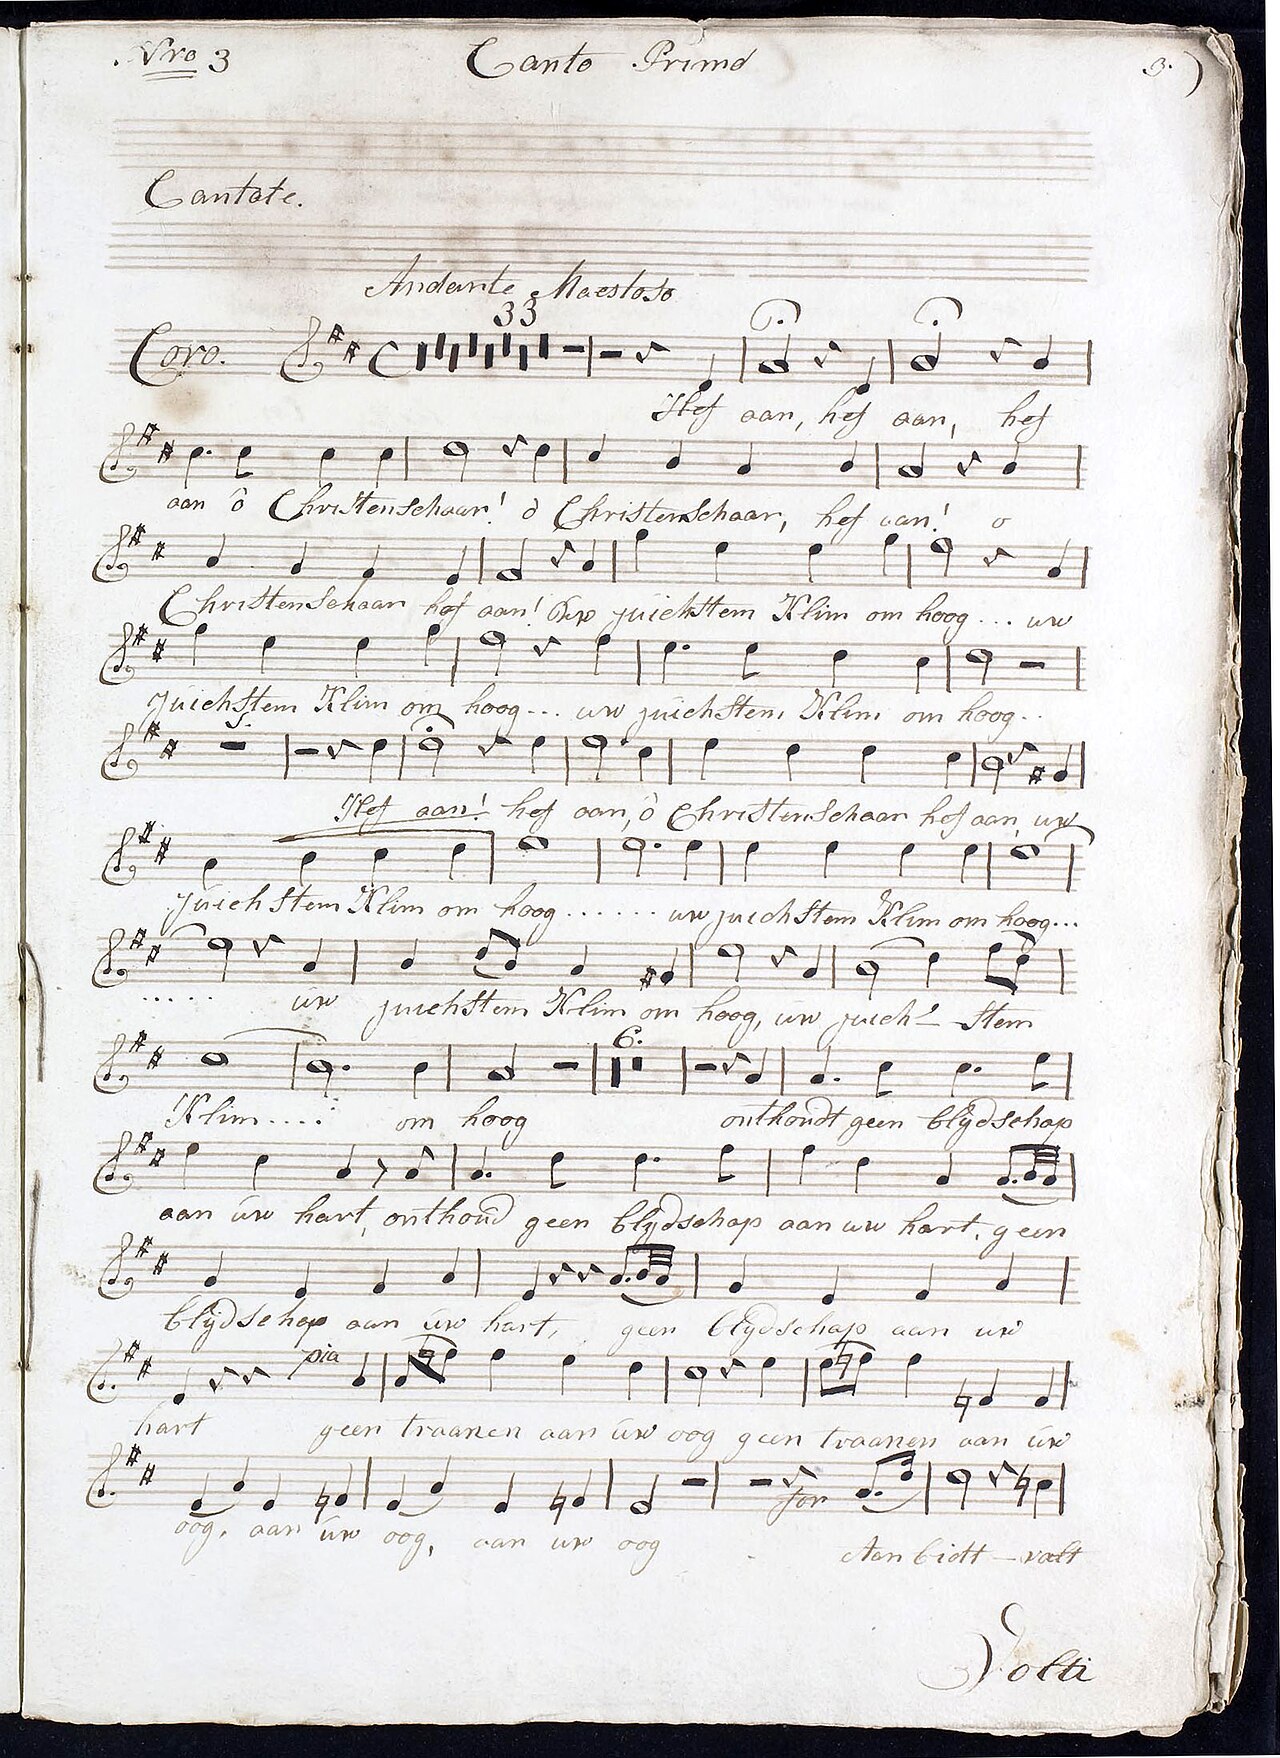 Nro 3 Canto Primo 3.
Cantate.
Andante Maestoso
33
Coro.
Hef aan, hef aan, hef
aan ô Christenschaar! ô Christenschaar, hef aan! o
Christenschaar hef aan! Uw juichstem Klim om hoog... uw
juichstem Klim om hoog... uw juichstem Klim om hoog..
Hef aan! hef aan, ô Christenschaar hef aan, uw
juichstem Klim om hoog...... uw juichstem Klim om hoog...
..... uw juichstem Klim om hoog, uw juich - stem
6.
Klim.... om hoog onthoudt geen blydschap
aan uw hart, onthoud geen blydschap aan uw hart, geen
blydschap aan uw hart, geen blydschap aan uw
pia
hart geen traanen aan uw oog geen traanen aan uw
for
oog, aan uw oog, aan uw oog Aanbidt - valt
Volti